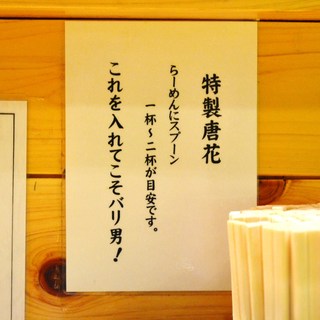 特製唐花
らーめんにスプーン
一杯～二杯が目安です。
これを入れてこそバリ男！